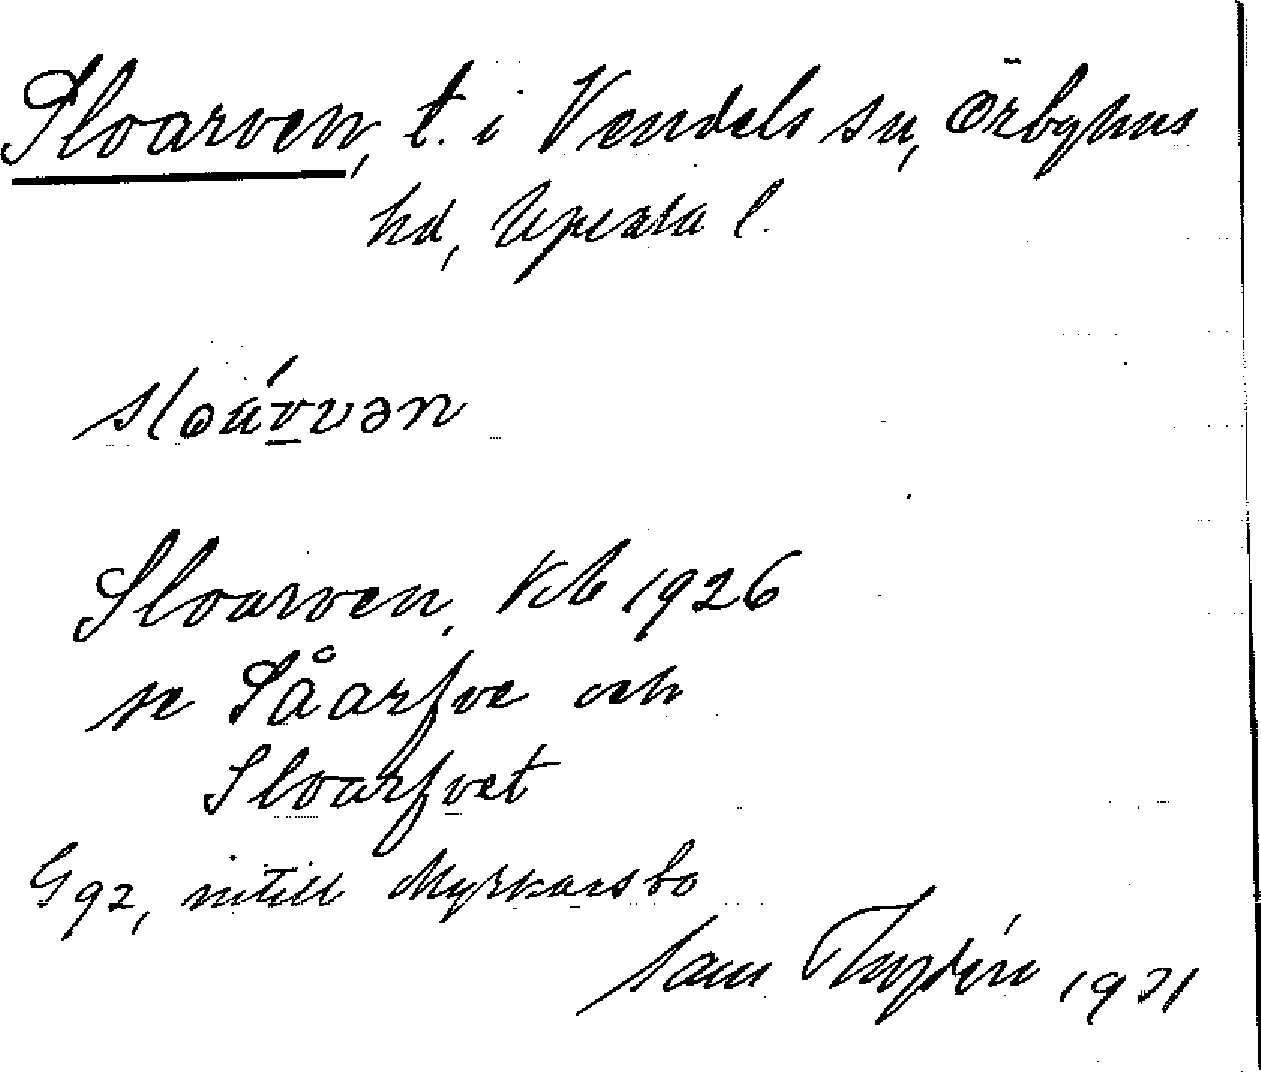 Sloarven, t. i Vendels sn, Örbyhus
hd, Upsala l.
Sloarven, Kb 1926
se Såarfve och
Sloarfvet
G 92, intill Myrkarsbo
Sam 1931